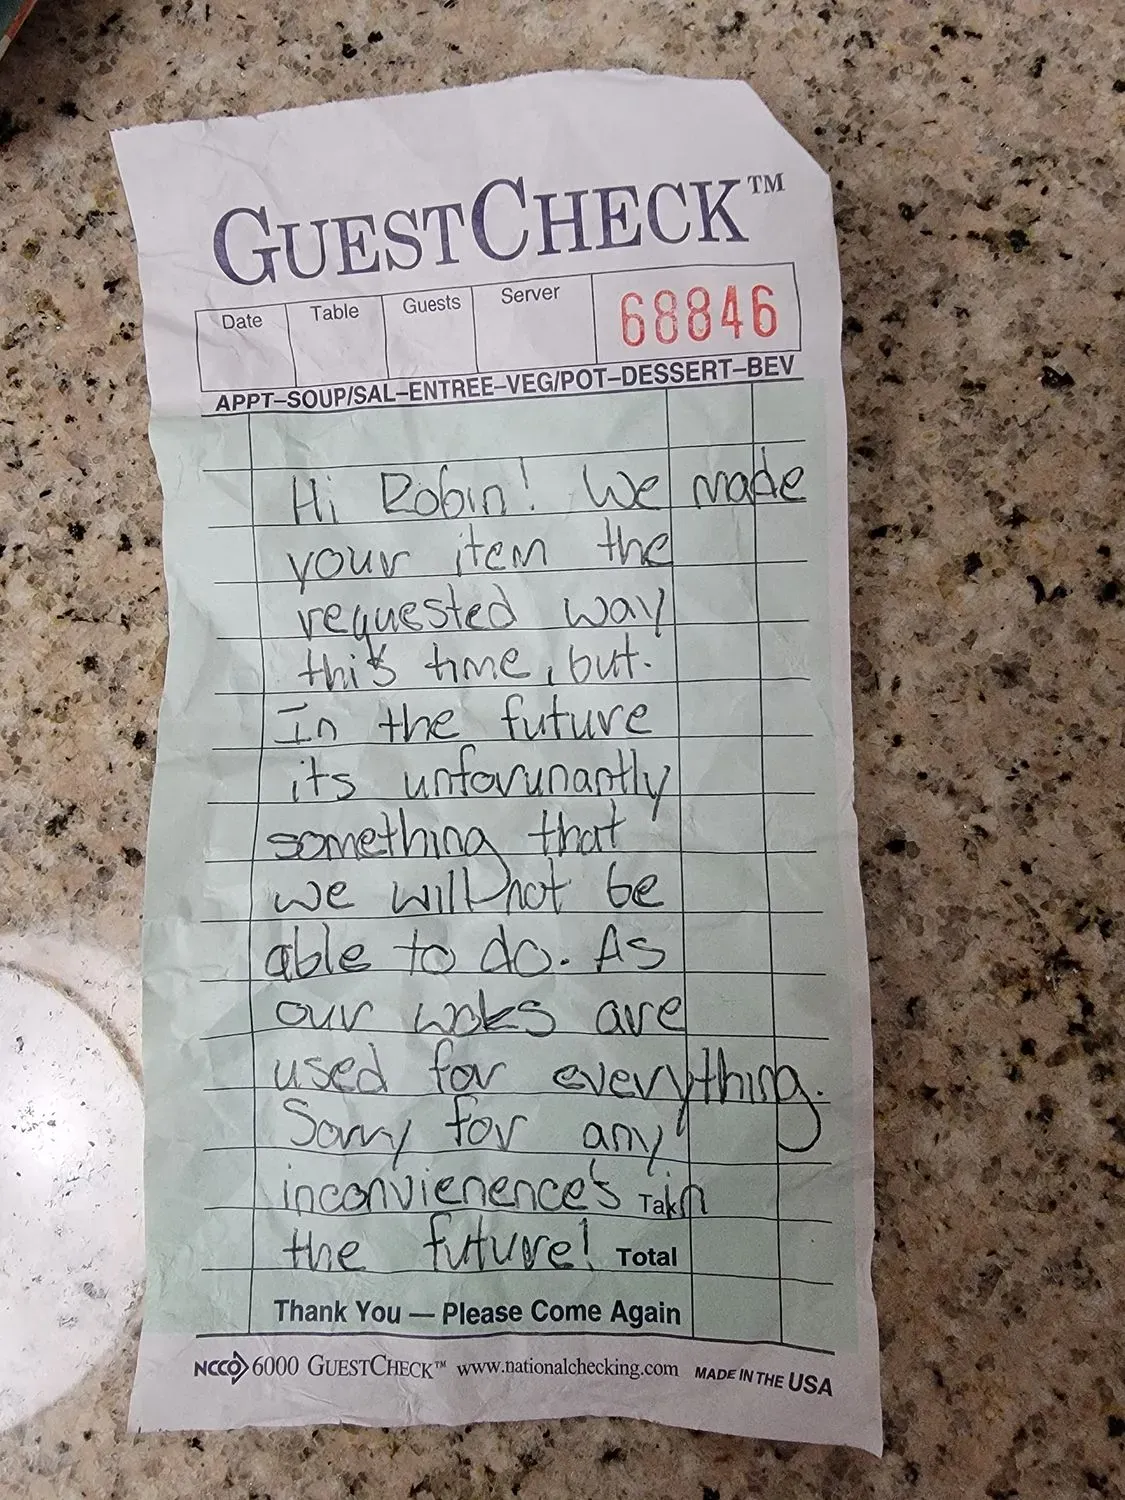 GUESTCHECK™
Date Table Guests Server 68846
APPT–SOUP/SAL–ENTREE–VEG/POT–DESSERT–BEV
Hi Robin! We made
your item the
requested way
this time, but.
In the future
its unforunantly
something that
we will not be
able to do. As
our woks are
used for everything.
Sorry for any
inconvienence's in
the future! Total
Thank You — Please Come Again
NCCO 6000 GUESTCHECK™ www.nationalchecking.com MADE IN THE USA